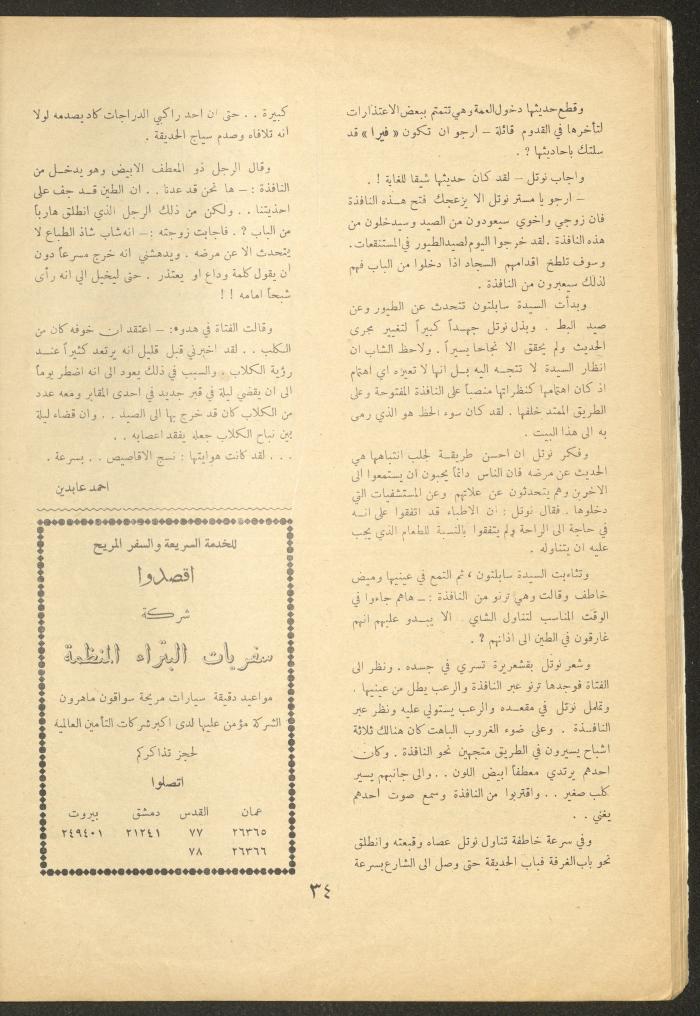 وقطع حديثها دخول العمة وهي تتمتم ببعض الاعتذارات
لتأخرها في القدوم قائلة – ارجو ان تكون « فيرا » قد
سلتك باحاديثها ? .
واجاب نوتل – لقد كان حديثها شيقا للغاية ! .
– ارجو يا مستر نوتل الا يزعجك فتح هذه النافذة
فان زوجي واخوي سيعودون من الصيد وسيدخلون من
هذه النافذة . لقد خرجوا اليوم لصيد الطيور في المستنقعات .
وسوف تلطخ اقدامهم السجاد اذا دخلوا من الباب فهم
لذلك سيعبرون من النافذة .
وبدأت السيدة سابلتون تتحدث عن الطيور وعن
صيد البط . وبذل نوتل جهداً كبيراً لتغيير مجرى
الحديث ولم يحقق الا نجاحا يسيراً . ولاحظ الشاب ان
انظار السيدة لا تتجه اليه بل انها لا تعيره اي اهتمام
اذ كان اهتمامها كنظراتها منصباً على النافذة المفتوحة وعلى
الطريق الممتد خلفها . لقد كان سوء الحظ هو الذي رمى
به الى هذا البيت .
وفكر نوتل ان احسن طريقة لجلب انتباهها هي
الحديث عن مرضه فان الناس دائماً يحبون ان يستمعوا الى
الاخرين وهم يتحدثون عن علاتهم وعن المستشفيات التي
دخلوها . فقال نوتل : ان الاطباء قد اتفقوا على انه
في حاجة الى الراحة ولم يتفقوا بالنسبة للطعام الذي يجب
عليه ان يتناوله .
وتثاءبت السيدة سابلتون ، ثم التمع في عينيها وميض
خاطف وقالت وهي ترنو من النافذة : – هاهم جاءوا في
الوقت المناسب لتناول الشاي . الا يبدو عليهم انهم
غارقون في الطين الى اذانهم ? .
وشعر نوتل بقشعريرة تسري في جسده . ونظر الى
الفتاة فوجدها ترنو عبر النافذة والرعب يطل من عينيها .
وتململ نوتل في مقعده والرعب يستولي عليه ونظر عبر
النافذة . وعلى ضوء الغروب الباهت كان هنالك ثلاثة
اشباح يسيرون في الطريق متجهين نحو النافذة . وكان
احدهم يرتدي معطفاً ابيض اللون . . والى جانبهم يسير
كلب صغير . . واقتربوا من النافذة وسمع صوت احدهم
يغني . .
وفي سرعة خاطفة تناول نوتل عصاه وقبعته وانطلق
نحو باب الغرفة فباب الحديقة حتى وصل الى الشارع بسرعة
كبيرة . . حتى ان احد راكبي الدراجات كاد يصدمه لولا
انه تلافاه وصدم سياج الحديقة .
وقال الرجل ذو المعطف الابيض وهو يدخل من
النافذة : – ها نحن قد عدنا . . ان الطين قد جف على
احذيتنا . . ولكن من ذلك الرجل الذي انطلق هارباً
من الباب ? . فاجابت زوجته : – انه شاب شاذ الطباع لا
يتحدث الا عن مرضه . ويدهشني انه خرج مسرعاً دون
أن يقول كلمة وداع او يعتذر . حتى ليخيل الي انه رأى
شبحاً امامه ! !
وقالت الفتاة في هدوء : – اعتقد ان خوفه كان من
الكلب . . لقد اخبرني قبل قليل انه يرتعد كثيراً عند
رؤية الكلاب . والسبب في ذلك يعود الى انه اضطر يوماً
الى ان يقضي ليلة في قبر جديد في احدى المقابر ومعه عدد
من الكلاب كان قد خرج بها الى الصيد . . وان قضاء ليلة
بين نباح الكلاب جعله يفقد اعصابه . .
. . . لقد كانت هوايتها : نسج الاقاصيص . . بسرعة .
احمد عابدين
للخدمة السريعة والسفر المريح
اقصدوا
شركة
سفريات البتراء المنظمة
مواعيد دقيقة سيارات مريحة سواقون ماهرون
الشركة مؤمن عليها لدى اكبر شركات التأمين العالمية
لحجز تذاكركم
اتصلوا
عمان القدس دمشق بيروت
٢٦٣٦٥ ٧٧ ٢١٢٤١ ٢٤٩٤٠١
٢٦٣٦٦ ٧٨
٣٤